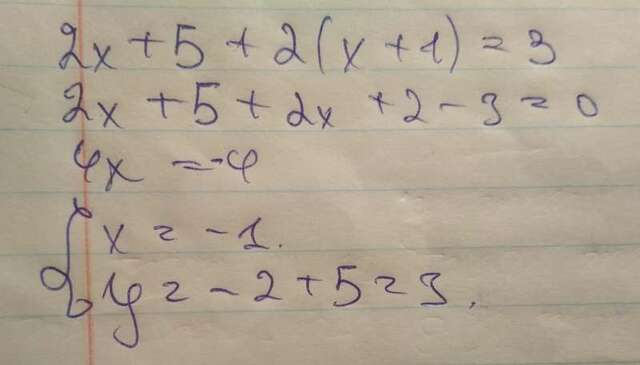 2x + 5 + 2(x + 1) = 3
2x + 5 + 2x + 2 - 3 = 0
4x = -4
{ x = -1.
y = -2 + 5 = 3.